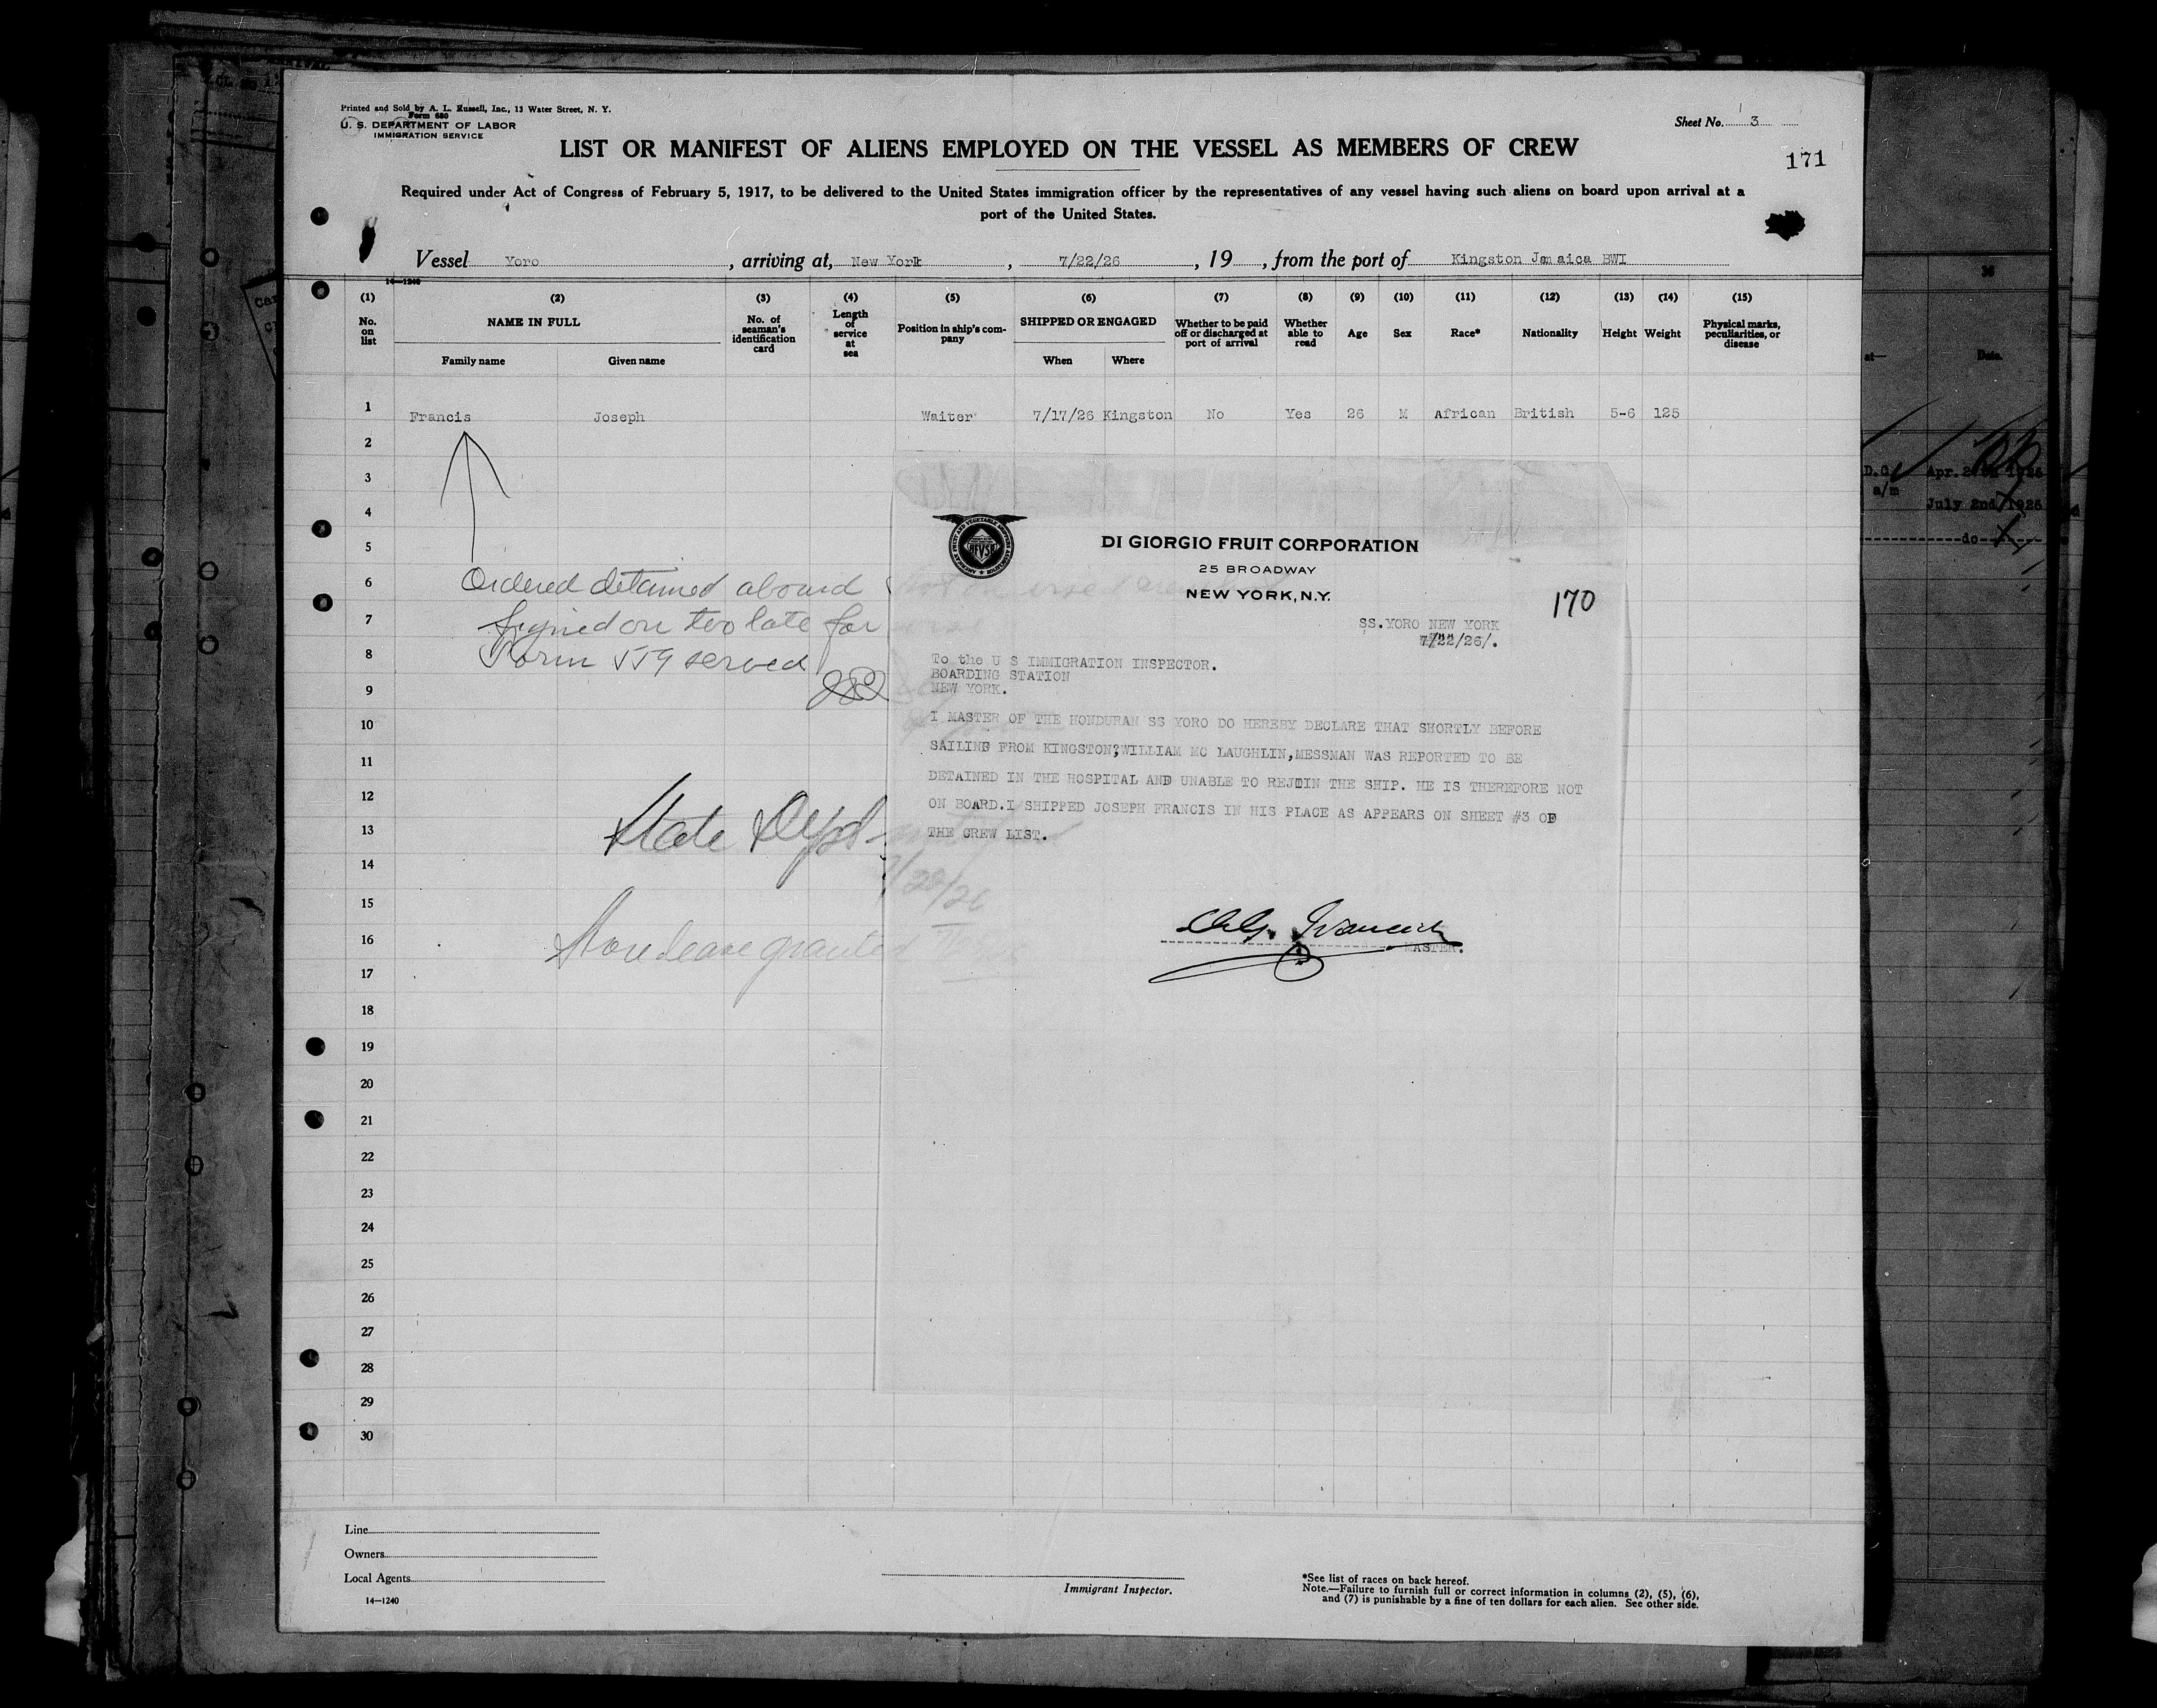 Printed and Sold by A. L. Russell, Inc., 13 Water Street, N. Y.
Form 680
U. S. DEPARTMENT OF LABOR
IMMIGRATION SERVICE
Sheet No. 3
LIST OR MANIFEST OF ALIENS EMPLOYED ON THE VESSEL AS MEMBERS OF CREW
171
Required under Act of Congress of February 5, 1917, to be delivered to the United States immigration officer by the representatives of any vessel having such aliens on board upon arrival at a
port of the United States.
Vessel Yoro, arriving at, New York, 7/22/26, 19, from the port of Kingston Jamaica BWI
14—1240
(1) (2) (3) (4) (5) (6) (7) (8) (9) (10) (11) (12) (13) (14) (15)
No. on list
NAME IN FULL
Family name Given name
No. of seaman's identification card
Length of service at sea
Position in ship's company
SHIPPED OR ENGAGED
When Where
Whether to be paid off or discharged at port of arrival
Whether able to read
Age Sex Race* Nationality Height Weight
Physical marks, peculiarities, or disease
1 Francis Joseph Waiter 7/17/26 Kingston No Yes 26 M African British 5-6 125
2
3
4
5
6
7
8
9
10
11
12
13
14
15
16
17
18
19
20
21
22
23
24
25
26
27
28
29
30
Ordered detained aboard
Signed on too late for
Form 559 served
State Dept
Shore leave granted
7/20/26
DI GIORGIO FRUIT CORPORATION
25 BROADWAY
NEW YORK, N.Y.
170
SS.YORO NEW YORK
7/22/26/.
To the U S IMMIGRATION INSPECTOR.
BOARDING STATION
NEW YORK.
I MASTER OF THE HONDURAN SS YORO DO HEREBY DECLARE THAT SHORTLY BEFORE
SAILING FROM KINGSTON;WILLIAM MC LAUGHLIN,MESSMAN WAS REPORTED TO BE
DETAINED IN THE HOSPITAL AND UNABLE TO REJOIN THE SHIP. HE IS THEREFORE NOT
ON BOARD.I SHIPPED JOSEPH FRANCIS IN HIS PLACE AS APPEARS ON SHEET #3 OF
THE CREW LIST.
MASTER.
Line
Owners
Local Agents
14—1240
Immigrant Inspector.
*See list of races on back hereof.
Note.—Failure to furnish full or correct information in columns (2), (5), (6),
and (7) is punishable by a fine of ten dollars for each alien. See other side.
36
at—
Data
D.C.
a/m
July 2nd/1926
do